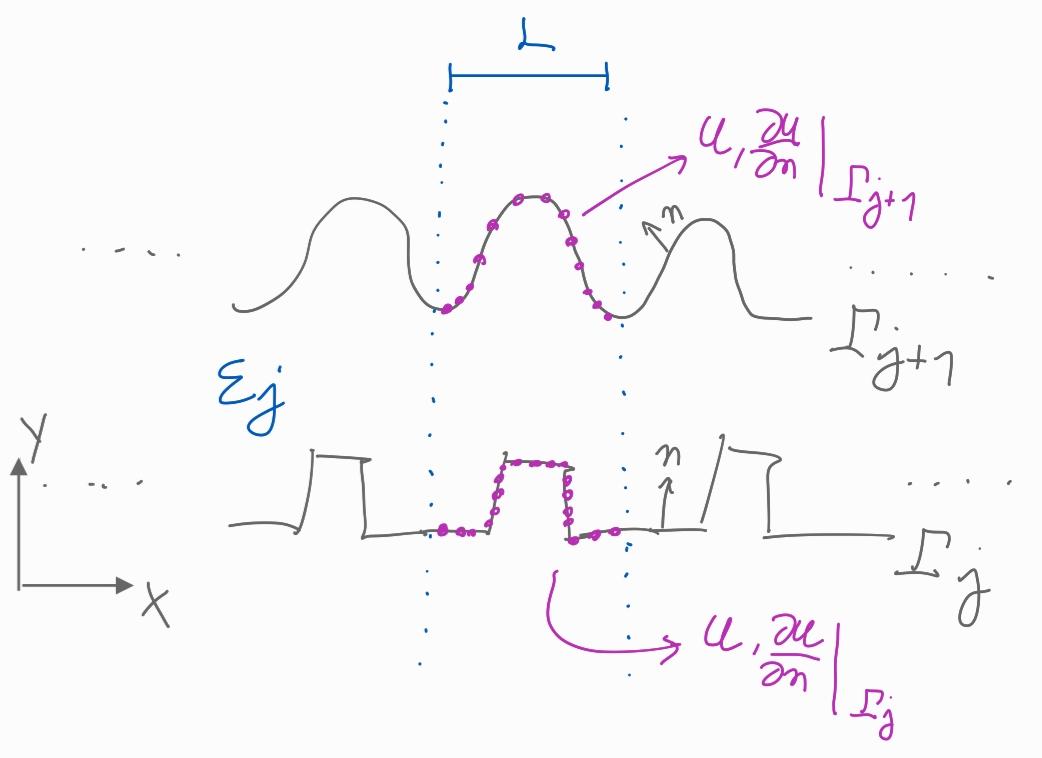 L
u, ∂u/∂n |Γj+1
n
. . . .
. . . . .
Γj+1
εj
Y
n
. . . .
. . . . .
Γj
X
u, ∂u/∂n |Γj